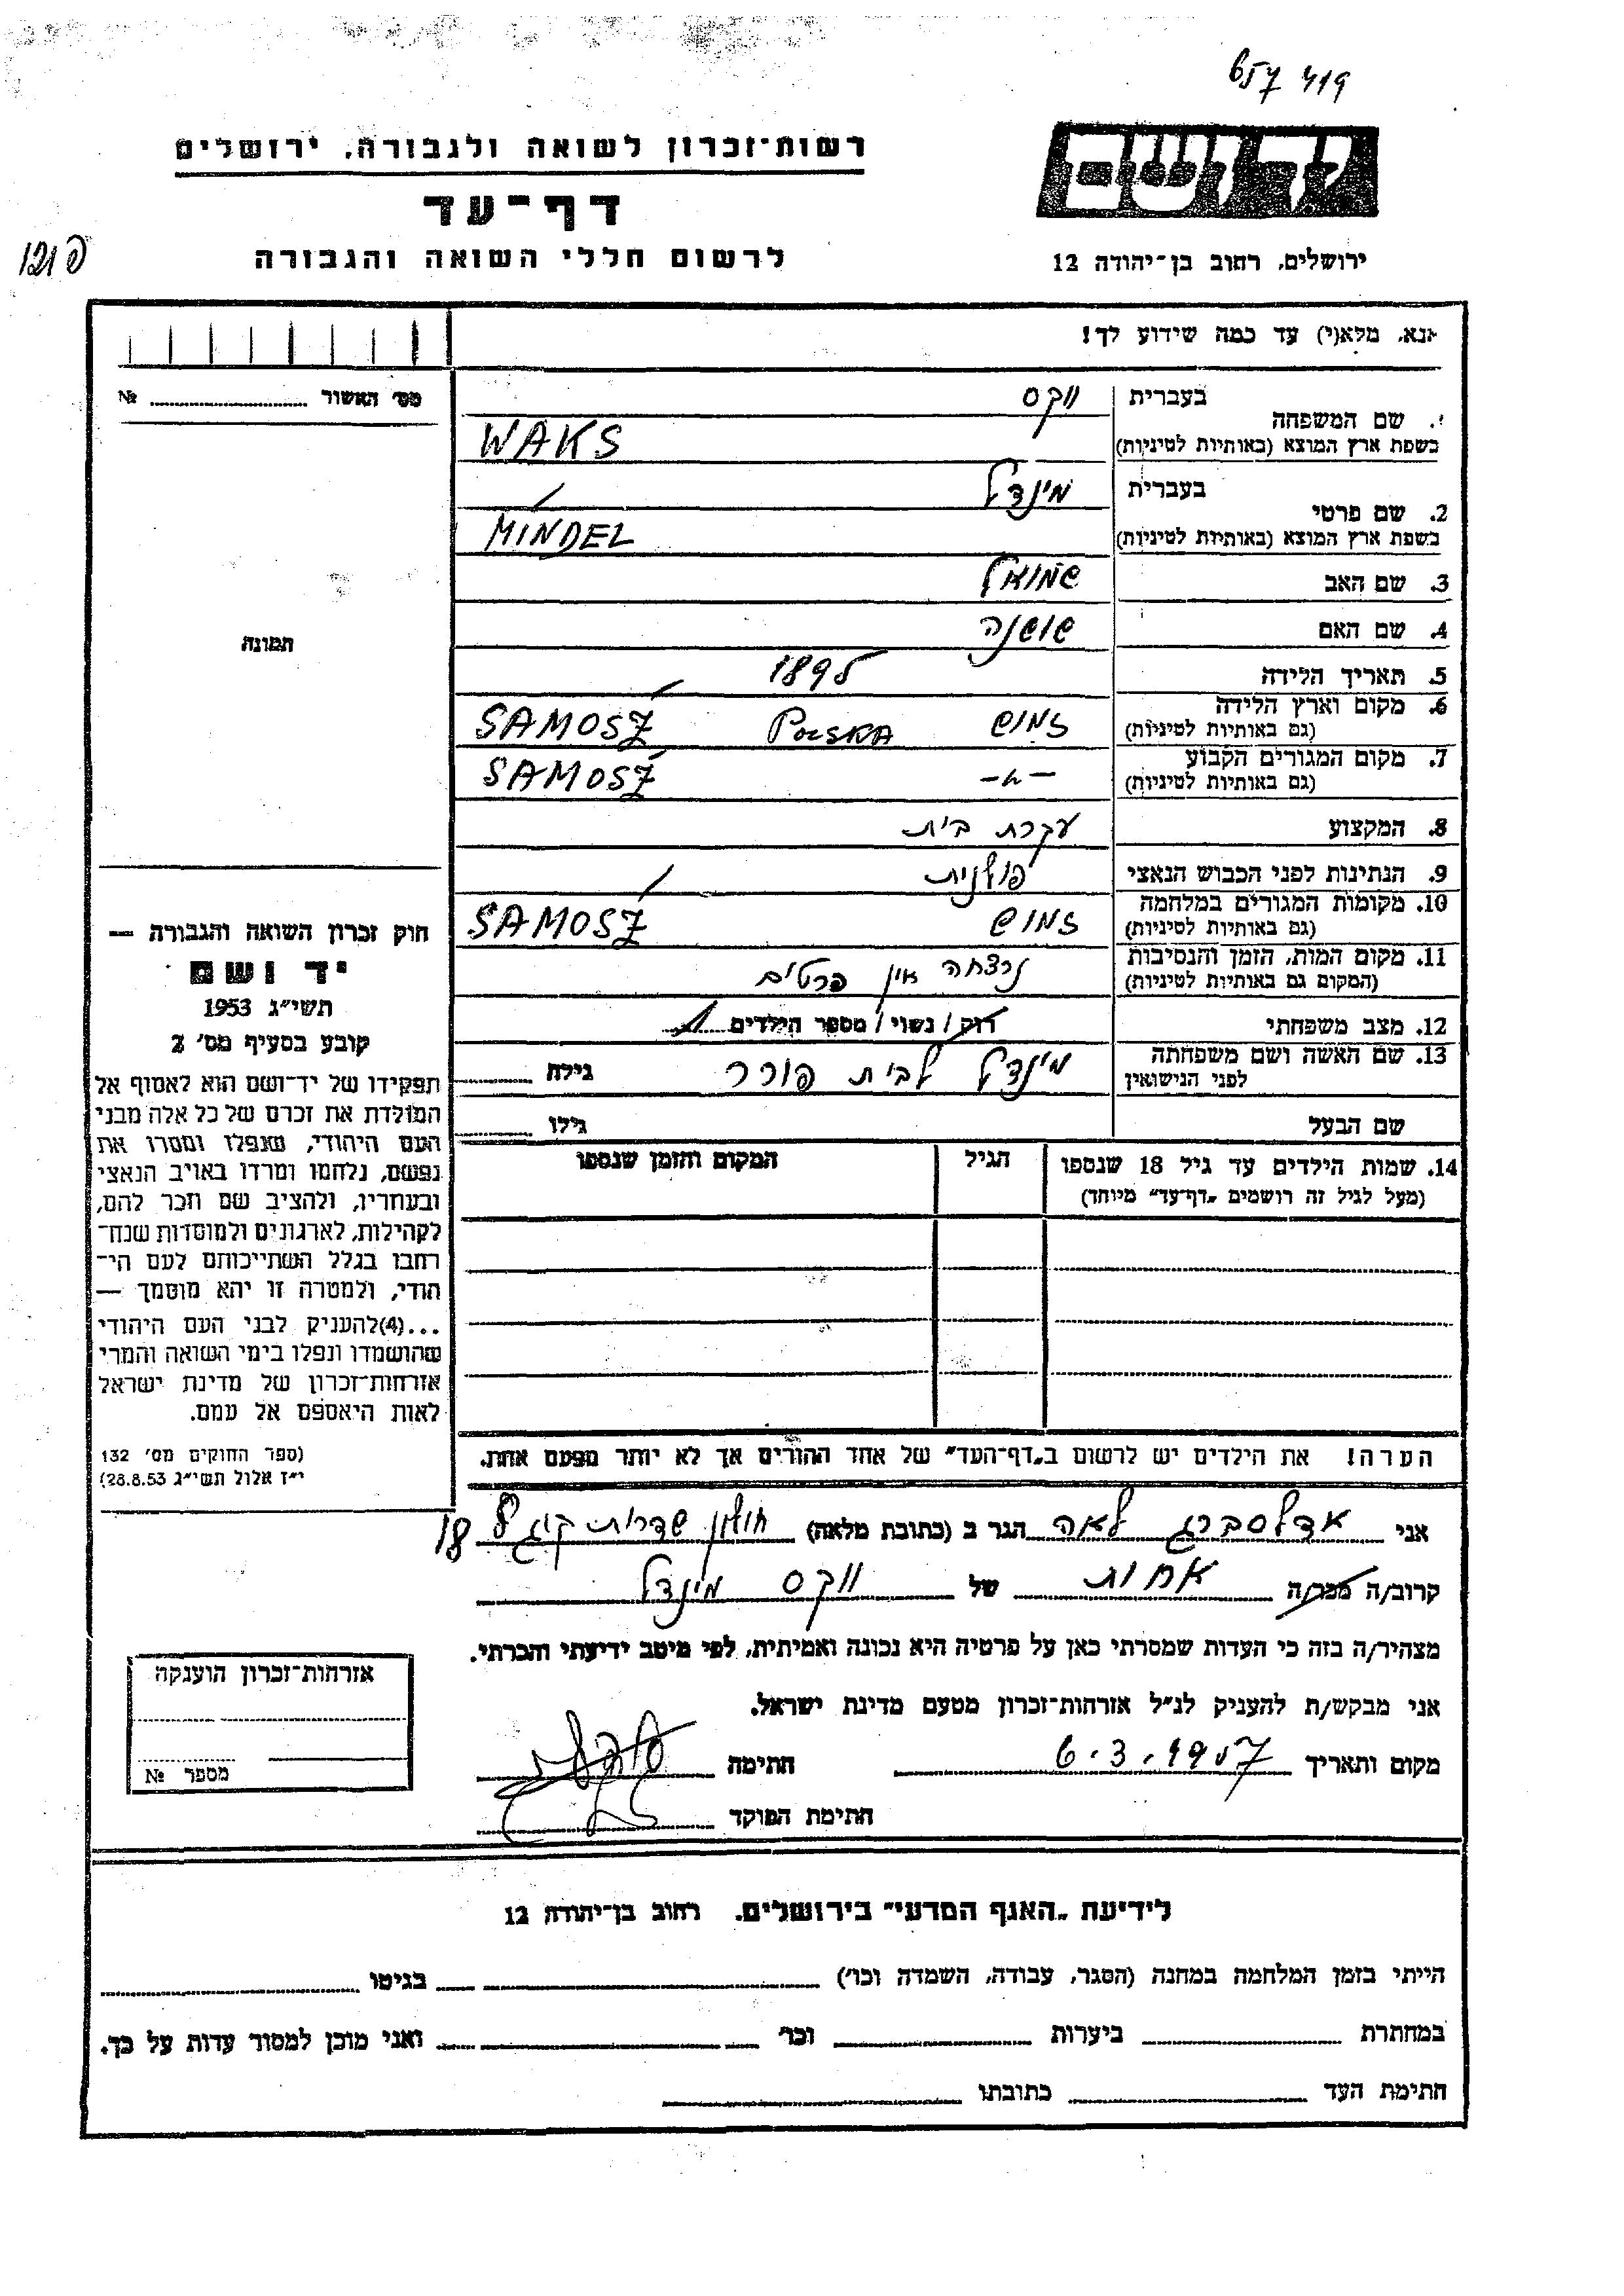 657 419
רשות־זכרון לשואה ולגבורה, ירושלים
דף־עד
לרשום חללי השואה והגבורה
ידושם
ירושלים, רחוב בן־יהודה 12
אנא, מלא(י) עד כמה שידוע לך!
מס׳ האשור №
1. שם המשפחה
בעברית ווקס
בשפת ארץ המוצא (באותיות לטיניות) WAKS
2. שם פרטי
בעברית מינדל
בשפת ארץ המוצא (באותיות לטיניות) MINDEL
3. שם האב שמואל
4. שם האם שושנה
5. תאריך הלידה 1895
6. מקום וארץ הלידה
(גם באותיות לטיניות) זמוש POLSKA SAMOSZ
7. מקום המגורים הקבוע
(גם באותיות לטיניות) -"- SAMOSZ
8. המקצוע עקרת בית
9. הנתינות לפני הכבוש הנאצי פולנית
10. מקומות המגורים במלחמה
(גם באותיות לטיניות) זמוש SAMOSZ
11. מקום המות, הזמן והנסיבות
(המקום גם באותיות לטיניות) נרצחה אין פרטים
12. מצב משפחתי רוק / נשוי / מספר הילדים
13. שם האשה ושם משפחתה
לפני הנישואין מינדל לבית פורר גילה
שם הבעל גילו
14. שמות הילדים עד גיל 18 שנספו הגיל המקום והזמן שנספו
(מעל לגיל זה רושמים „דף־עד״ מיוחד)
הערה! את הילדים יש לרשום ב„דף־העד״ של אחד ההורים אך לא יותר מפעם אחת.
תמונה
חוק זכרון השואה והגבורה —
יד ושם
תשי״ג 1953
קובע בסעיף מס׳ 2
תפקידו של יד־ושם הוא לאסוף אל
המולדת את זכרם של כל אלה מבני
העם היהודי, שנפלו ומסרו את
נפשם, נלחמו ומרדו באויב הנאצי
ובעוזריו, ולהציב שם וזכר להם,
לקהילות, לארגונים ולמוסדות שנח־
רבו בגלל השתייכותם לעם הי־
הודי, ולמטרה זו יהא מוסמך —
...(4)להעניק לבני העם היהודי
שהושמדו ונפלו בימי השואה והמרי
אזרחות־זכרון של מדינת ישראל
לאות היאספם אל עמם.
(ספר החוקים מס׳ 132
י״ז אלול תשי״ג 28.8.53)
אני אדלסברג לאה הגר ב (כתובת מלאה) חולון שדרות קוגל 18
קרוב/ה מכר/ה אחות של ווקס מינדל
מצהיר/ה בזה כי העדות שמסרתי כאן על פרטיה היא נכונה ואמיתית, לפי מיטב ידיעתי והכרתי.
אני מבקש/ת להעניק לנ״ל אזרחות־זכרון מטעם מדינת ישראל.
מקום ותאריך 6.3.1957 חתימה
חתימת הפוקד
אזרחות־זכרון הוענקה
מספר №
לידיעת „האגף המדעי״ בירושלים, רחוב בן־יהודה 12
הייתי בזמן המלחמה במחנה (הסגר, עבודה, השמדה וכו׳) בגיטו
במחתרת ביערות וכו׳ ואני מוכן למסור עדות על כך.
חתימת העד כתובתו